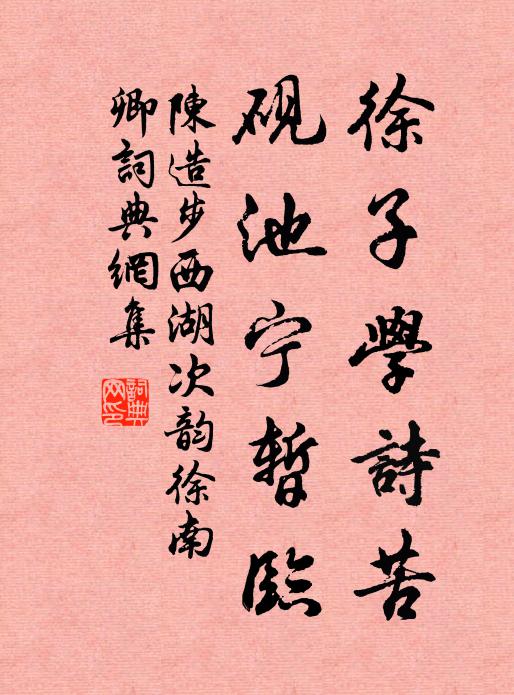 徐子學詩苦
硯池宁暫臨
陳造步西湖次韵徐南
卿詞典網集
詞典
网印